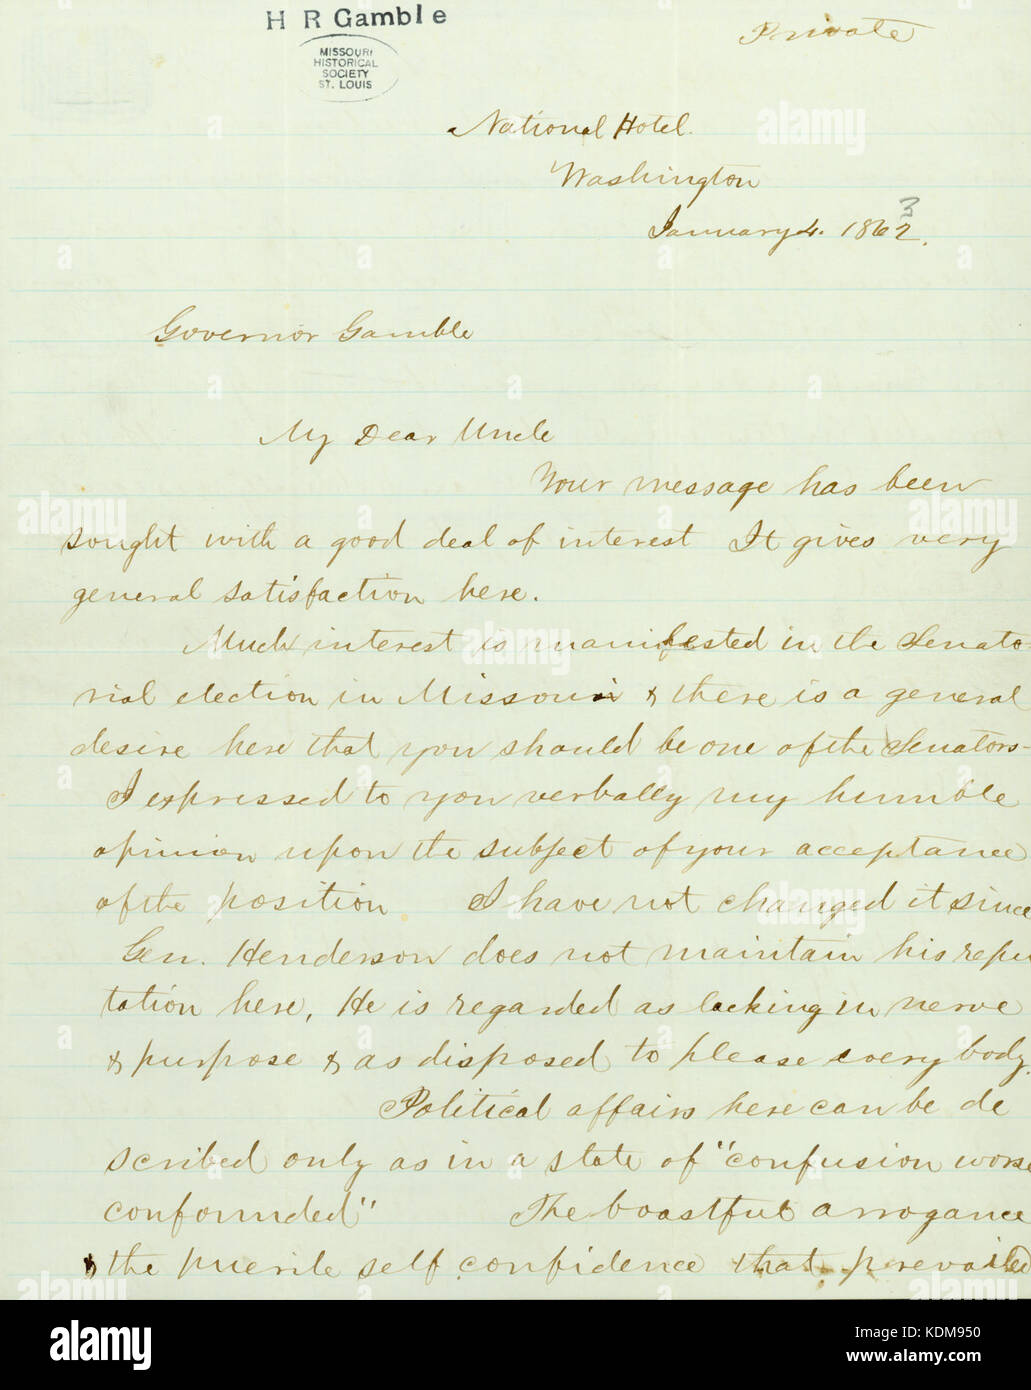 H R Gamble
MISSOURI
HISTORICAL
SOCIETY
ST. LOUIS
Private
National Hotel.
Washington
January 4. 1862.
3
Governor Gamble
My Dear Uncle
Your message has been
sought with a good deal of interest It gives very
general satisfaction here.
Much interest is manifested in the Senato-
rial election in Missouri & there is a general
desire here that you should be one of the Senators-
I expressed to you verbally my humble
opinion upon the subject of your acceptance
of the position I have not changed it since
Gen. Henderson does not maintain his repu
tation here, He is regarded as lacking in nerve
& purpose & as disposed to please every body.
Political affairs here can be de
scribed only as in a state of "confusion worse
confounded" The boastful arrogance
& the puerile self confidence that prevailed
alamy
Image ID: KDM950
www.alamy.com